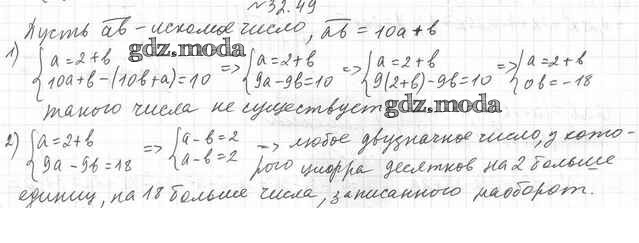 №32.49
Пусть ab - искомое число, ab = 10a + b
1) { a = 2 + b => { a = 2 + b => { a = 2 + b => { a = 2 + b
10a + b - (10b + a) = 10 9a - 9b = 10 9(2 + b) - 9b = 10 0b = -18
gdz.moda
такого числа не существует
gdz.moda
2) { a = 2 + b => { a - b = 2 => любое двузначное число, у кото-
9a - 9b = 18 a - b = 2 рого цифра десятков на 2 больше
единиц, на 18 больше числа, записанного наоборот.